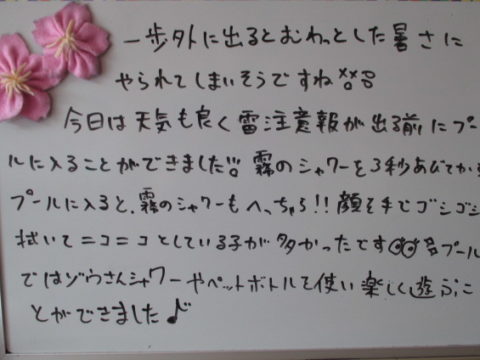 一歩外に出るとむわっとした暑さに
やられてしまいそうですね××
今日は天気も良く雷注意報が出る前にプー
ルに入ることができました!! 霧のシャワーを3秒あびてから
プールに入ると、霧のシャワーもへっちゃら!! 顔を手でゴシゴシ
拭いてニコニコとしている子が多かったです プール
ではゾウさんシャワーやペットボトルを使い楽しく遊ぶこ
とができました♪